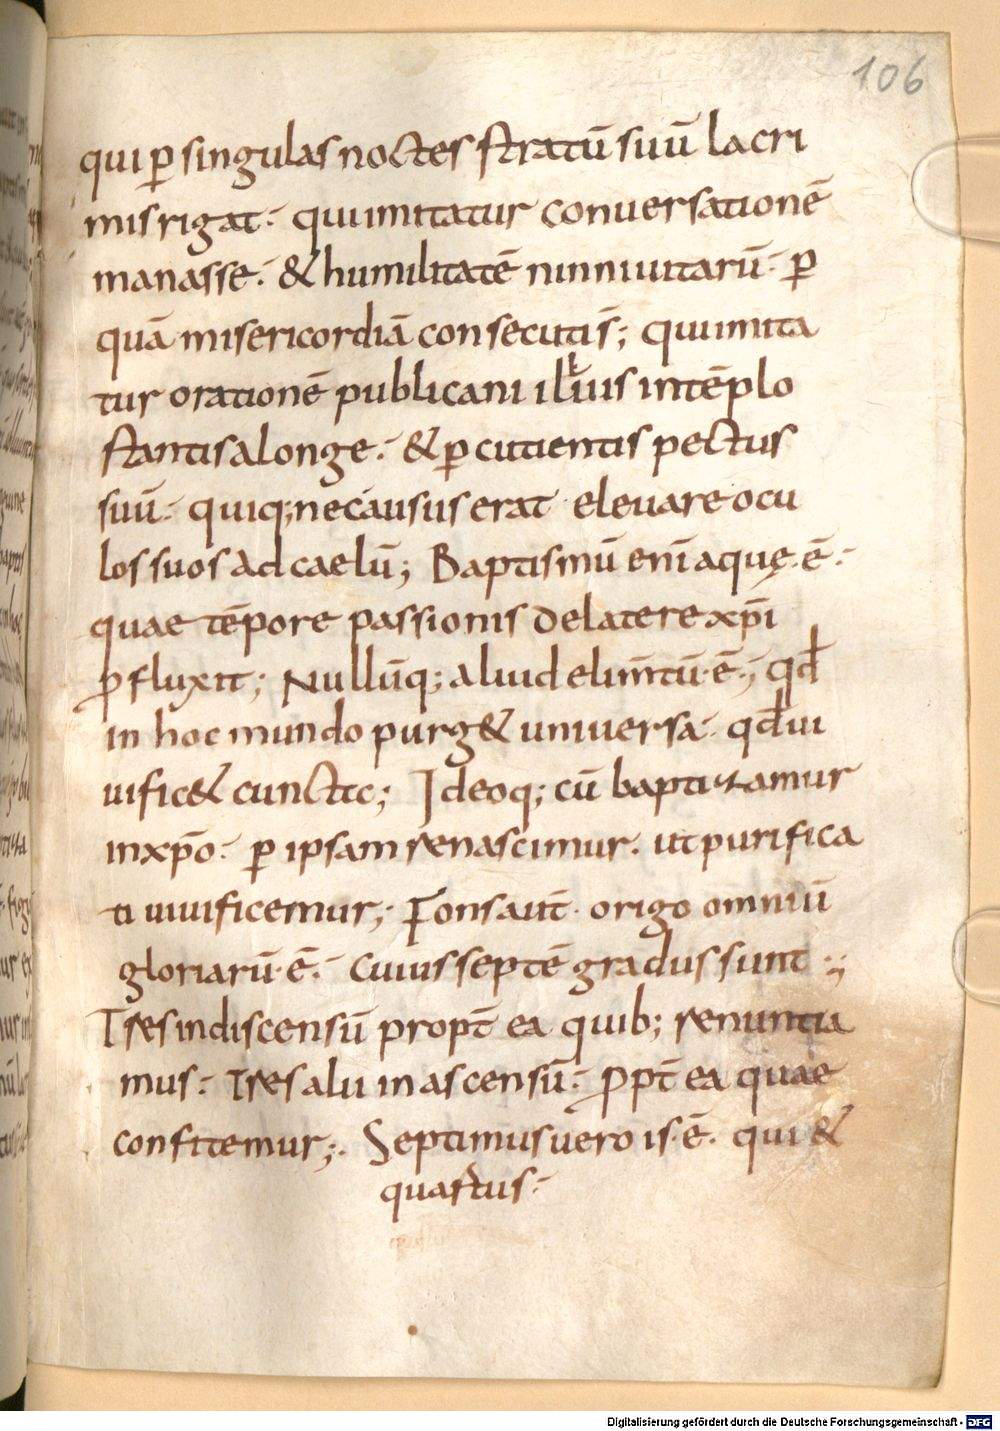 106
qui ꝑ singulas noctes stratū suū lacri
mis rigat · qui imitatur conuersationē
manasse · & humilitatē ninniuitarū · ꝑ
quā misericordiā consecuti s̄; qui imita
tur orationē publicani illius in tēplo
stantis a longe · & ꝑcutientis pectus
suū · quiq; nec ausus erat eleuare ocu
los suos ad caelū; Baptismū enī aquę · ē ·
quae tēpore passionis de latere xp̄i
ꝓfluxit; Nullūq; aliud elim̄tū · ē ·; qđ
in hoc mundo purg& uniuersa · qđ ui
uific& cuncta; Ideoq; cū baptizamur
in xp̄o · ꝑ ipsam renascimur · ut purifica
ti uiuificemur; Fons aut̄ · origo omniū
gloriarū · ē · cuius septē gradus sunt ·;
Tres in discensū propt̄ ea quib; renuntia
mus · Tres alii in ascensū · ꝓpt̄ ea quae
confitemur; Septimus uero is · ē · qui &
quartus ·
Digitalisierung gefördert durch die Deutsche Forschungsgemeinschaft - DFG